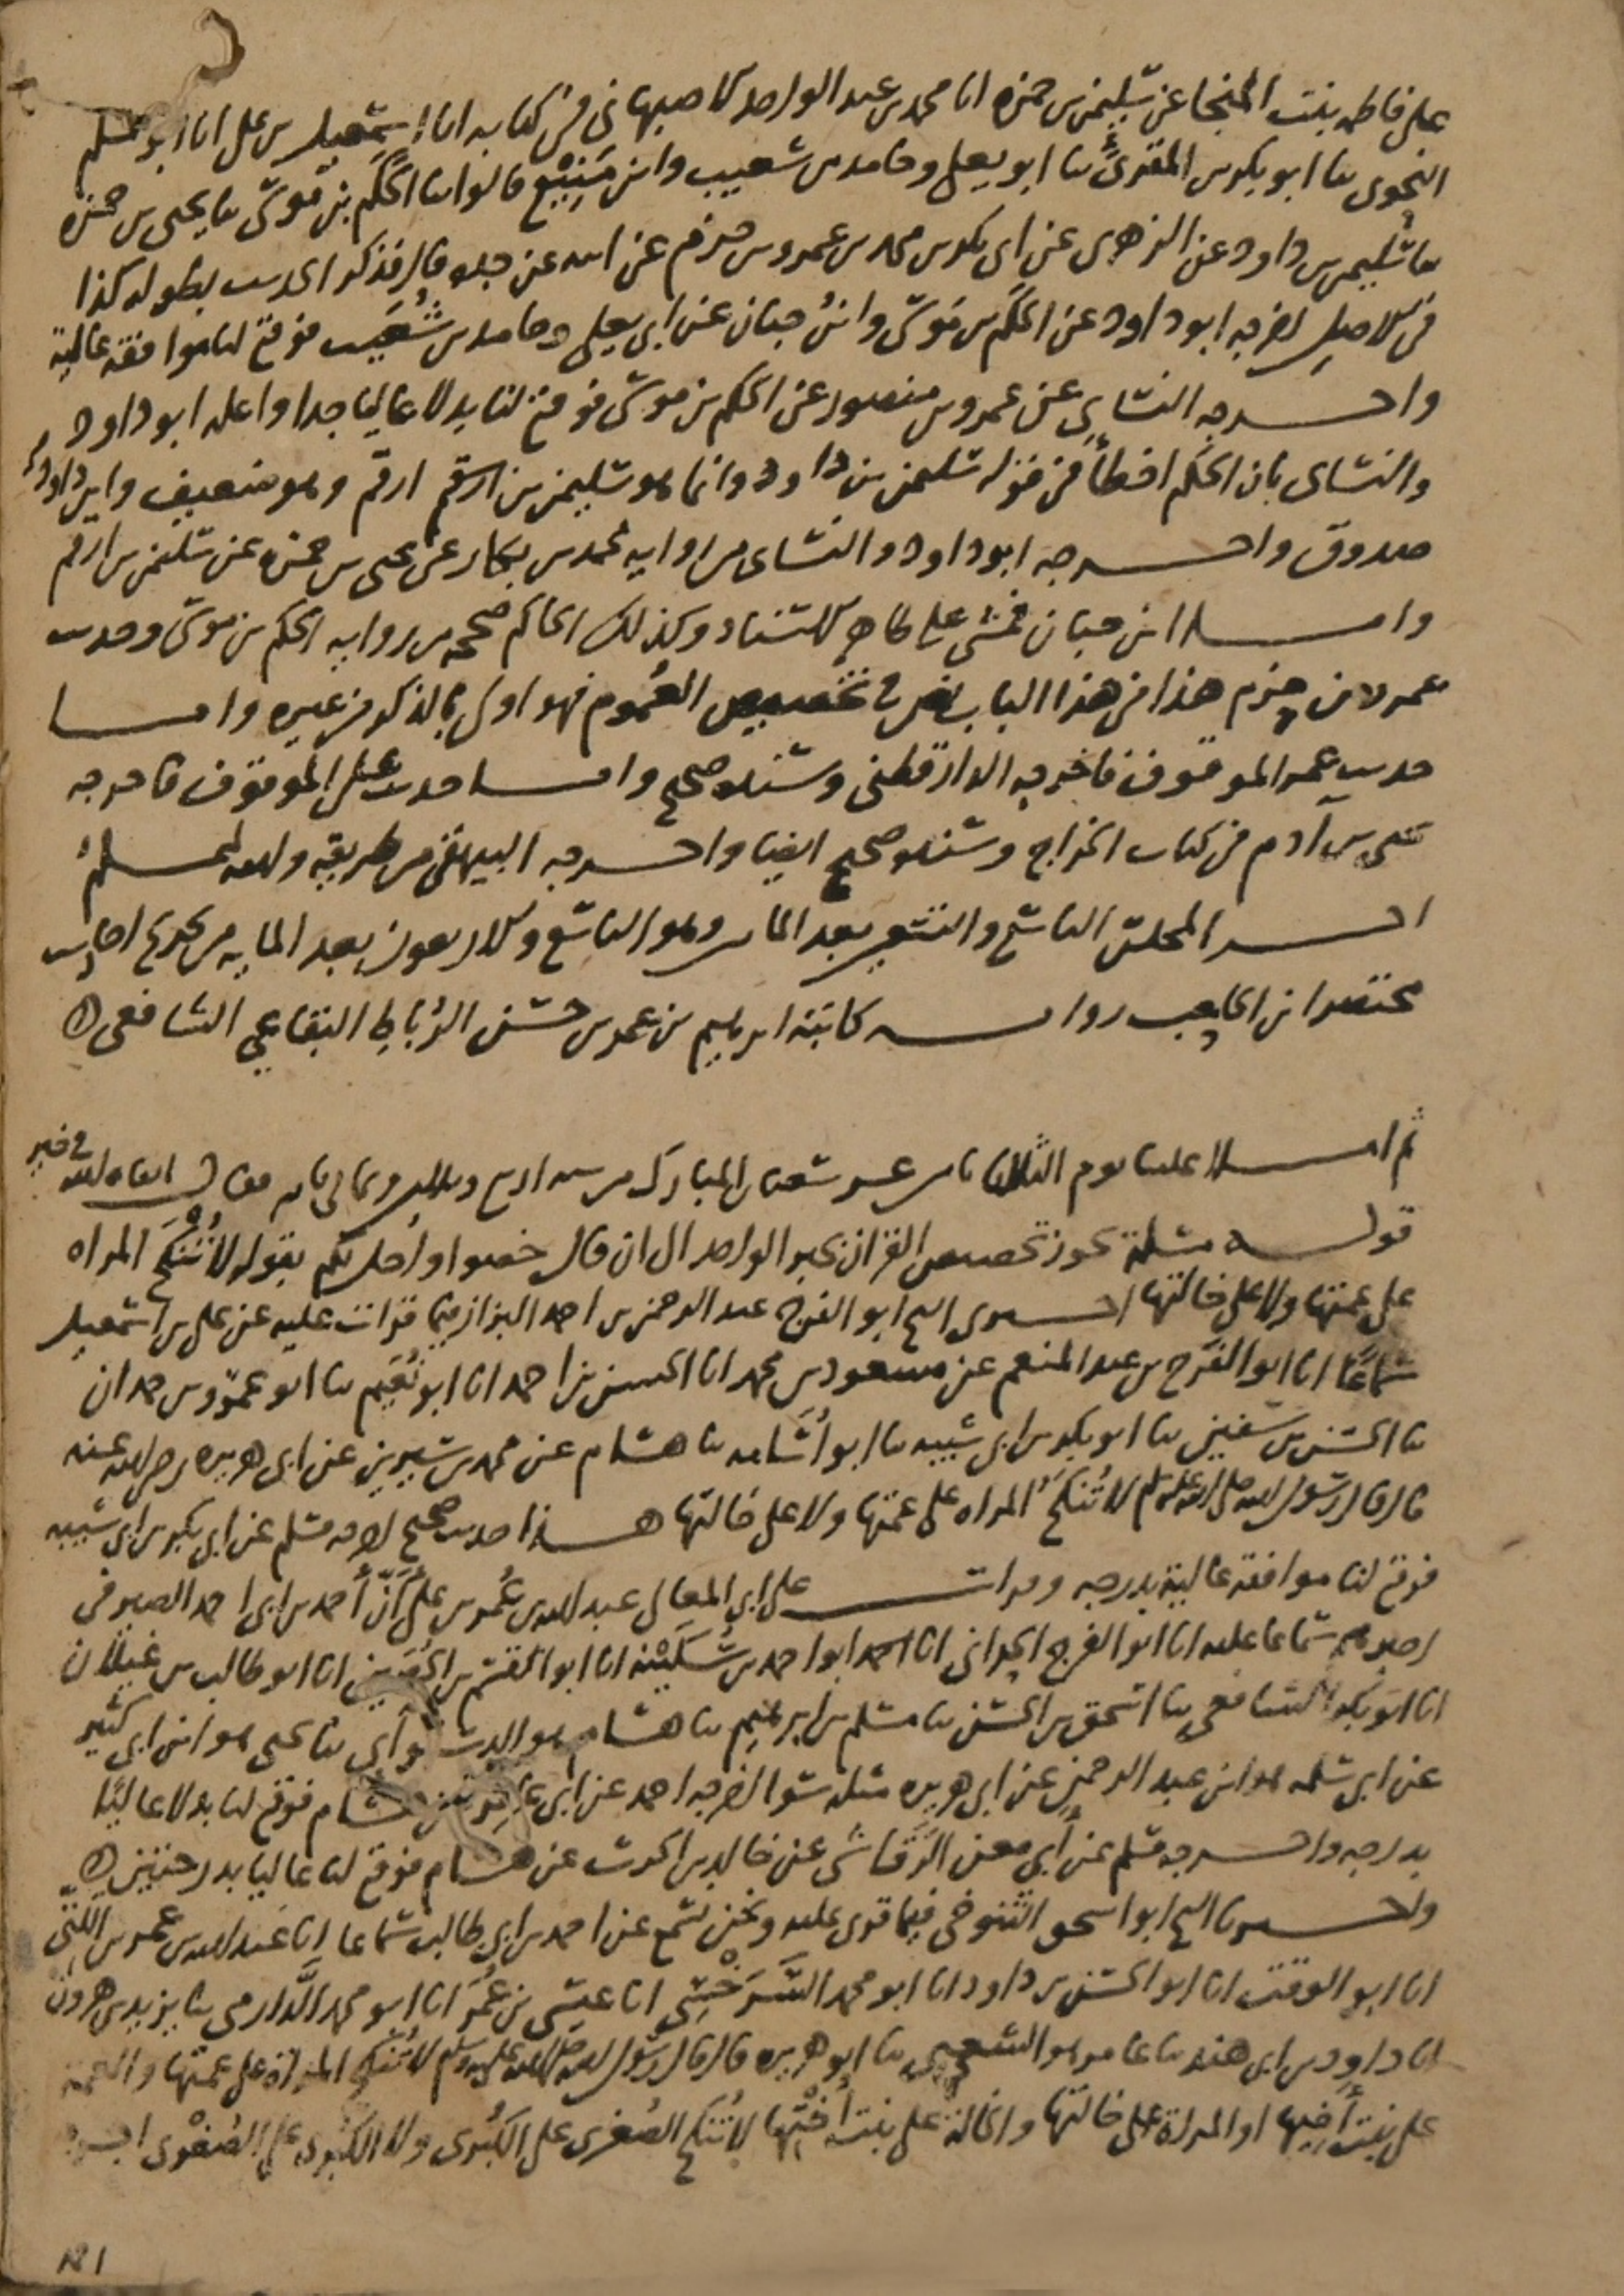 على فاطمه بنت المنجا عن سليمن بن حمزه انا محمد بن عبد الواحد الاصبهانى فى كتابه انا اسمعيل بن على انا ابو مسلم
النحوى ثنا ابو بكر بن المقرئ ثنا ابو يعلى وحامد بن شعيب وابن منيع قالوا ثنا الحكم بن موسى ثنا يحيى بن حمزه
ثنا سليمن بن داود عن الزهرى عن ابى بكر بن محمد بن عمرو بن حزم عن ابيه عن جده قال فذكر الحديث بطوله كذا
فى الاصل اخرجه ابو داود عن الحكم بن موسى وابن حبان عن ابى يعلى وحامد بن شعيب فوقع لنا موافقه عالية
واخرجه النسائى عن عمرو بن منصور عن الحكم بن موسى فوقع لنا بدلا عاليا جدا واعله ابو داود
والنسائى بان الحكم اخطأ فى قوله سليمن بن داود وانما هو سليمن بن ارقم ارقم وهو ضعيف وابن داود
صدوق واخرجه ابو داود والنسائى من روايه محمد بن بكار عن يحيى بن حمزه عن سليمن بن ارقم
واما ابن حبان فمشى على ظاهر الاسناد وكذلك الحاكم صححه من روايه الحكم بن موسى وحديث
عمرو بن حزم هذا فى هذا الباب نص فى تخصيص العموم فهو اولى بالذكر من غيره واما
حديث عمر الموقوف فاخرجه الدارقطنى وسنده صحيح واما حديث على الموقوف فاخرجه
يحيى بن آدم فى كتاب الخراج وسنده صحيح ايضا واخرجه البيهقى من طريقه ولله الحمد
اخر المجلس التاسع والتسعين بعد الماىه وهو التاسع والاربعون بعد المايه من تخريج احاديث
مختصر ابن الحاجب روايه كاتبه ابرهيم بن عمر بن حسن الرُّبَاط البقاعي الشافعى
ثم املا علينا يوم الثلاثا ثامن عشر شعبان المبارك من سنه اربع وثلاثين وثمانى مايه فقال ابقاه الله فى خير
قوله مسلة يجوز تخصيص القران بخبر الواحد الى ان قال خصوا واحل لكم بقوله لا تُنْكَحُ المراه
على عمتها ولا على خالتها اخبرنى الشيخ ابو الفرج عبد الرحمن بن احمد البزاز فيما قرات عليه عن على بن اسمعيل
سَمَاعًا انا ابو الفَرَج بن عبد المنعم عن مسعود بن محمد انا الحسن بن احمد انا ابو نُعَيم ثنا ابو عمرو بن حمدان
ثنا الحسن بن سفين ثنا ابو بكر بن ابى شيبه ثنا ابو أسَامه ثنا هشام عن محمد بن سيرين عن ابى هريره رضى الله عنه
قال قال رسول الله صلى الله عليه وسلم لا تُنكَحُ المراه على عمتها ولا على خالتها هذا حديث صحيح اخرجه مسلم عن ابى بكر بن ابى شيبه
فوقع لنا موافقه عالية بدرجه وقرات على ابى المعالى عبد الله بن عُمر بن عَلى أنّ أحمد بن ابى احمد الصيرفى
اخبرهم سماعا عليه انا ابو الفرج الحرانى انا احمد ابو احمد بن سُكَيْنه انا ابو القسم بن الحُصَين انا ابو طالب بن غيلان
انا ابو بكر الشافعى ثنا اسحق بن الحسن ثنا مسلم بن ابرهيم ثنا هشام هو الدستوائى ثنا يحيى هو ابن ابى كثير
عن ابى سلمه هو ابن عبد الرحمن عن ابى هريره مثله سوا اخرجه احمد عن ابى عامر عن هشام فوقع لنا بدلا عاليًا
بدرجه واخرجه مسلم عن أبى معن الرَّقاشى عن خالد بن الحرث عن هشام فوقع لنا عاليا بدرجتين
واخبرنا الشيخ ابو اسحق التنوخى فيما قرى عليه ونحن نسمع عن احمد بن ابى طالب سماعا انا عبد الله بن عمر بن اللَّتى
انا ابو الوقت انا ابو الحسن بن داود انا ابو محمد السَّرَخْسِى انا عيسى بن عُمَر انا ابو محمد الدَّارمى ثنا يزيد بن هرون
انا داود بن ابى هند ثنا عامر هو الشعبى ثنا ابو هريره قال قال رسول الله صلى الله عليه وسلم لا تُنكح المراة على عمتها والعمة
على بنت أَخيها او المراة على خالتها والخالة على بنت أُخْتِها لا تُنكح الصُغرى على الكُبْرى ولا الكُبْرى على الصُغْرى
١٢١